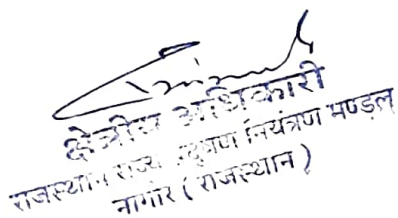 क्षेत्रीय अधिकारी
राजस्थान राज्य प्रदूषण नियंत्रण मण्डल
नागौर (राजस्थान)